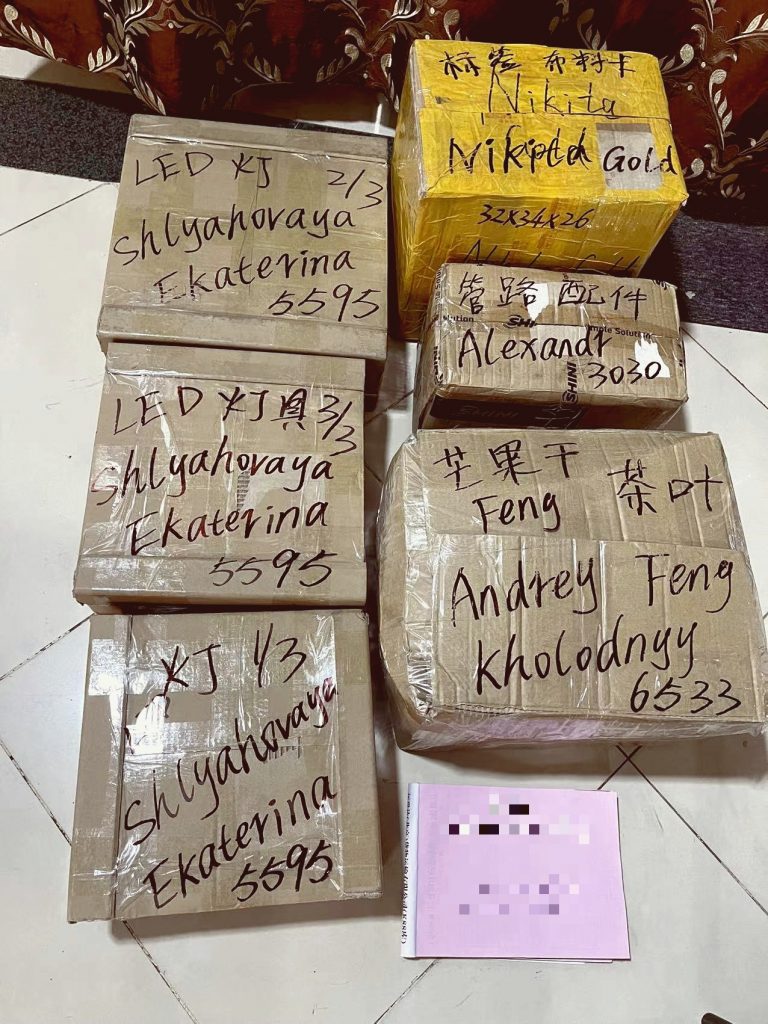 LED 灯 2/3
Shlyahovaya
Ekaterina
5595
LED 灯具 3/3
Shlyahovaya
Ekaterina
5595
灯 1/3
Shlyahovaya
Ekaterina
5595
标签 布料卡
Nikita
Gold
32X34X26
管路配件
Alexandr
3030
芒果干
Feng
茶叶
Andrey Feng
Kholodnyy
6533